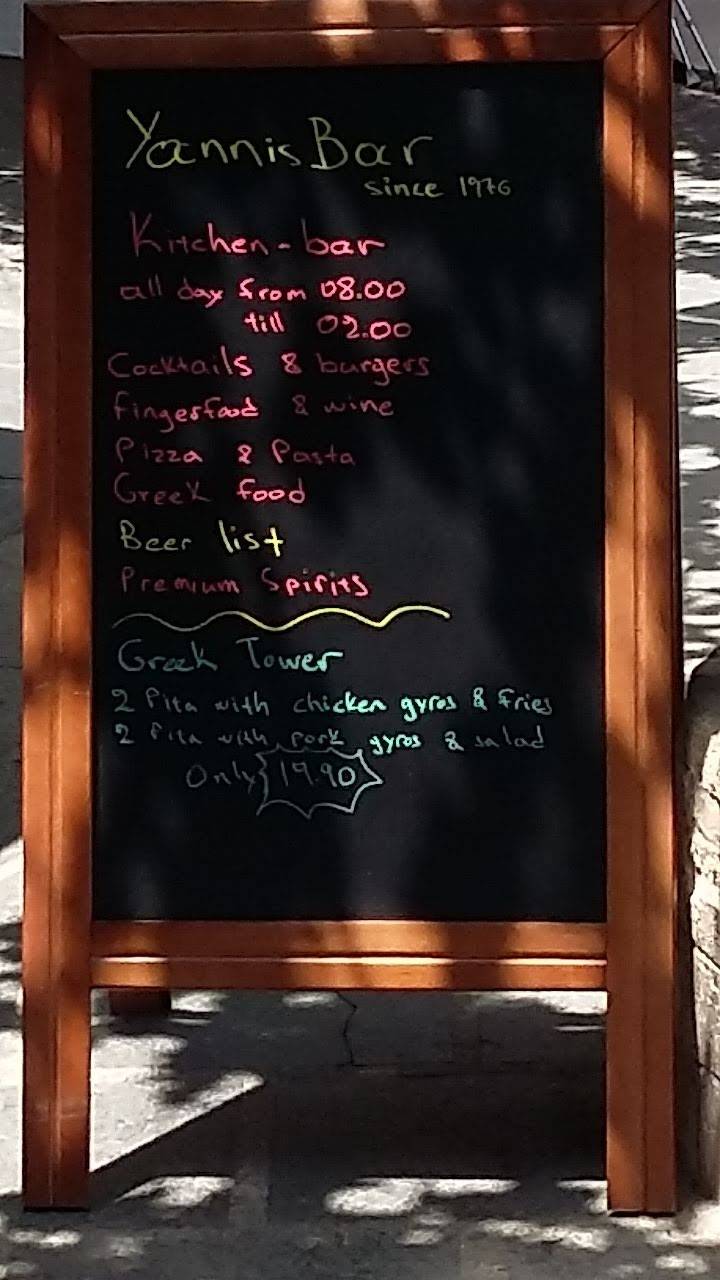 Yannis Bar
since 1976
Kitchen-bar
all day from 08.00
till 02.00
Cocktails & burgers
fingerfood & wine
Pizza & Pasta
Greek food
Beer list
Premium Spirits
Greek Tower
2 Pita with chicken gyros & fries
2 Pita with pork gyros & salad
Only 19.90